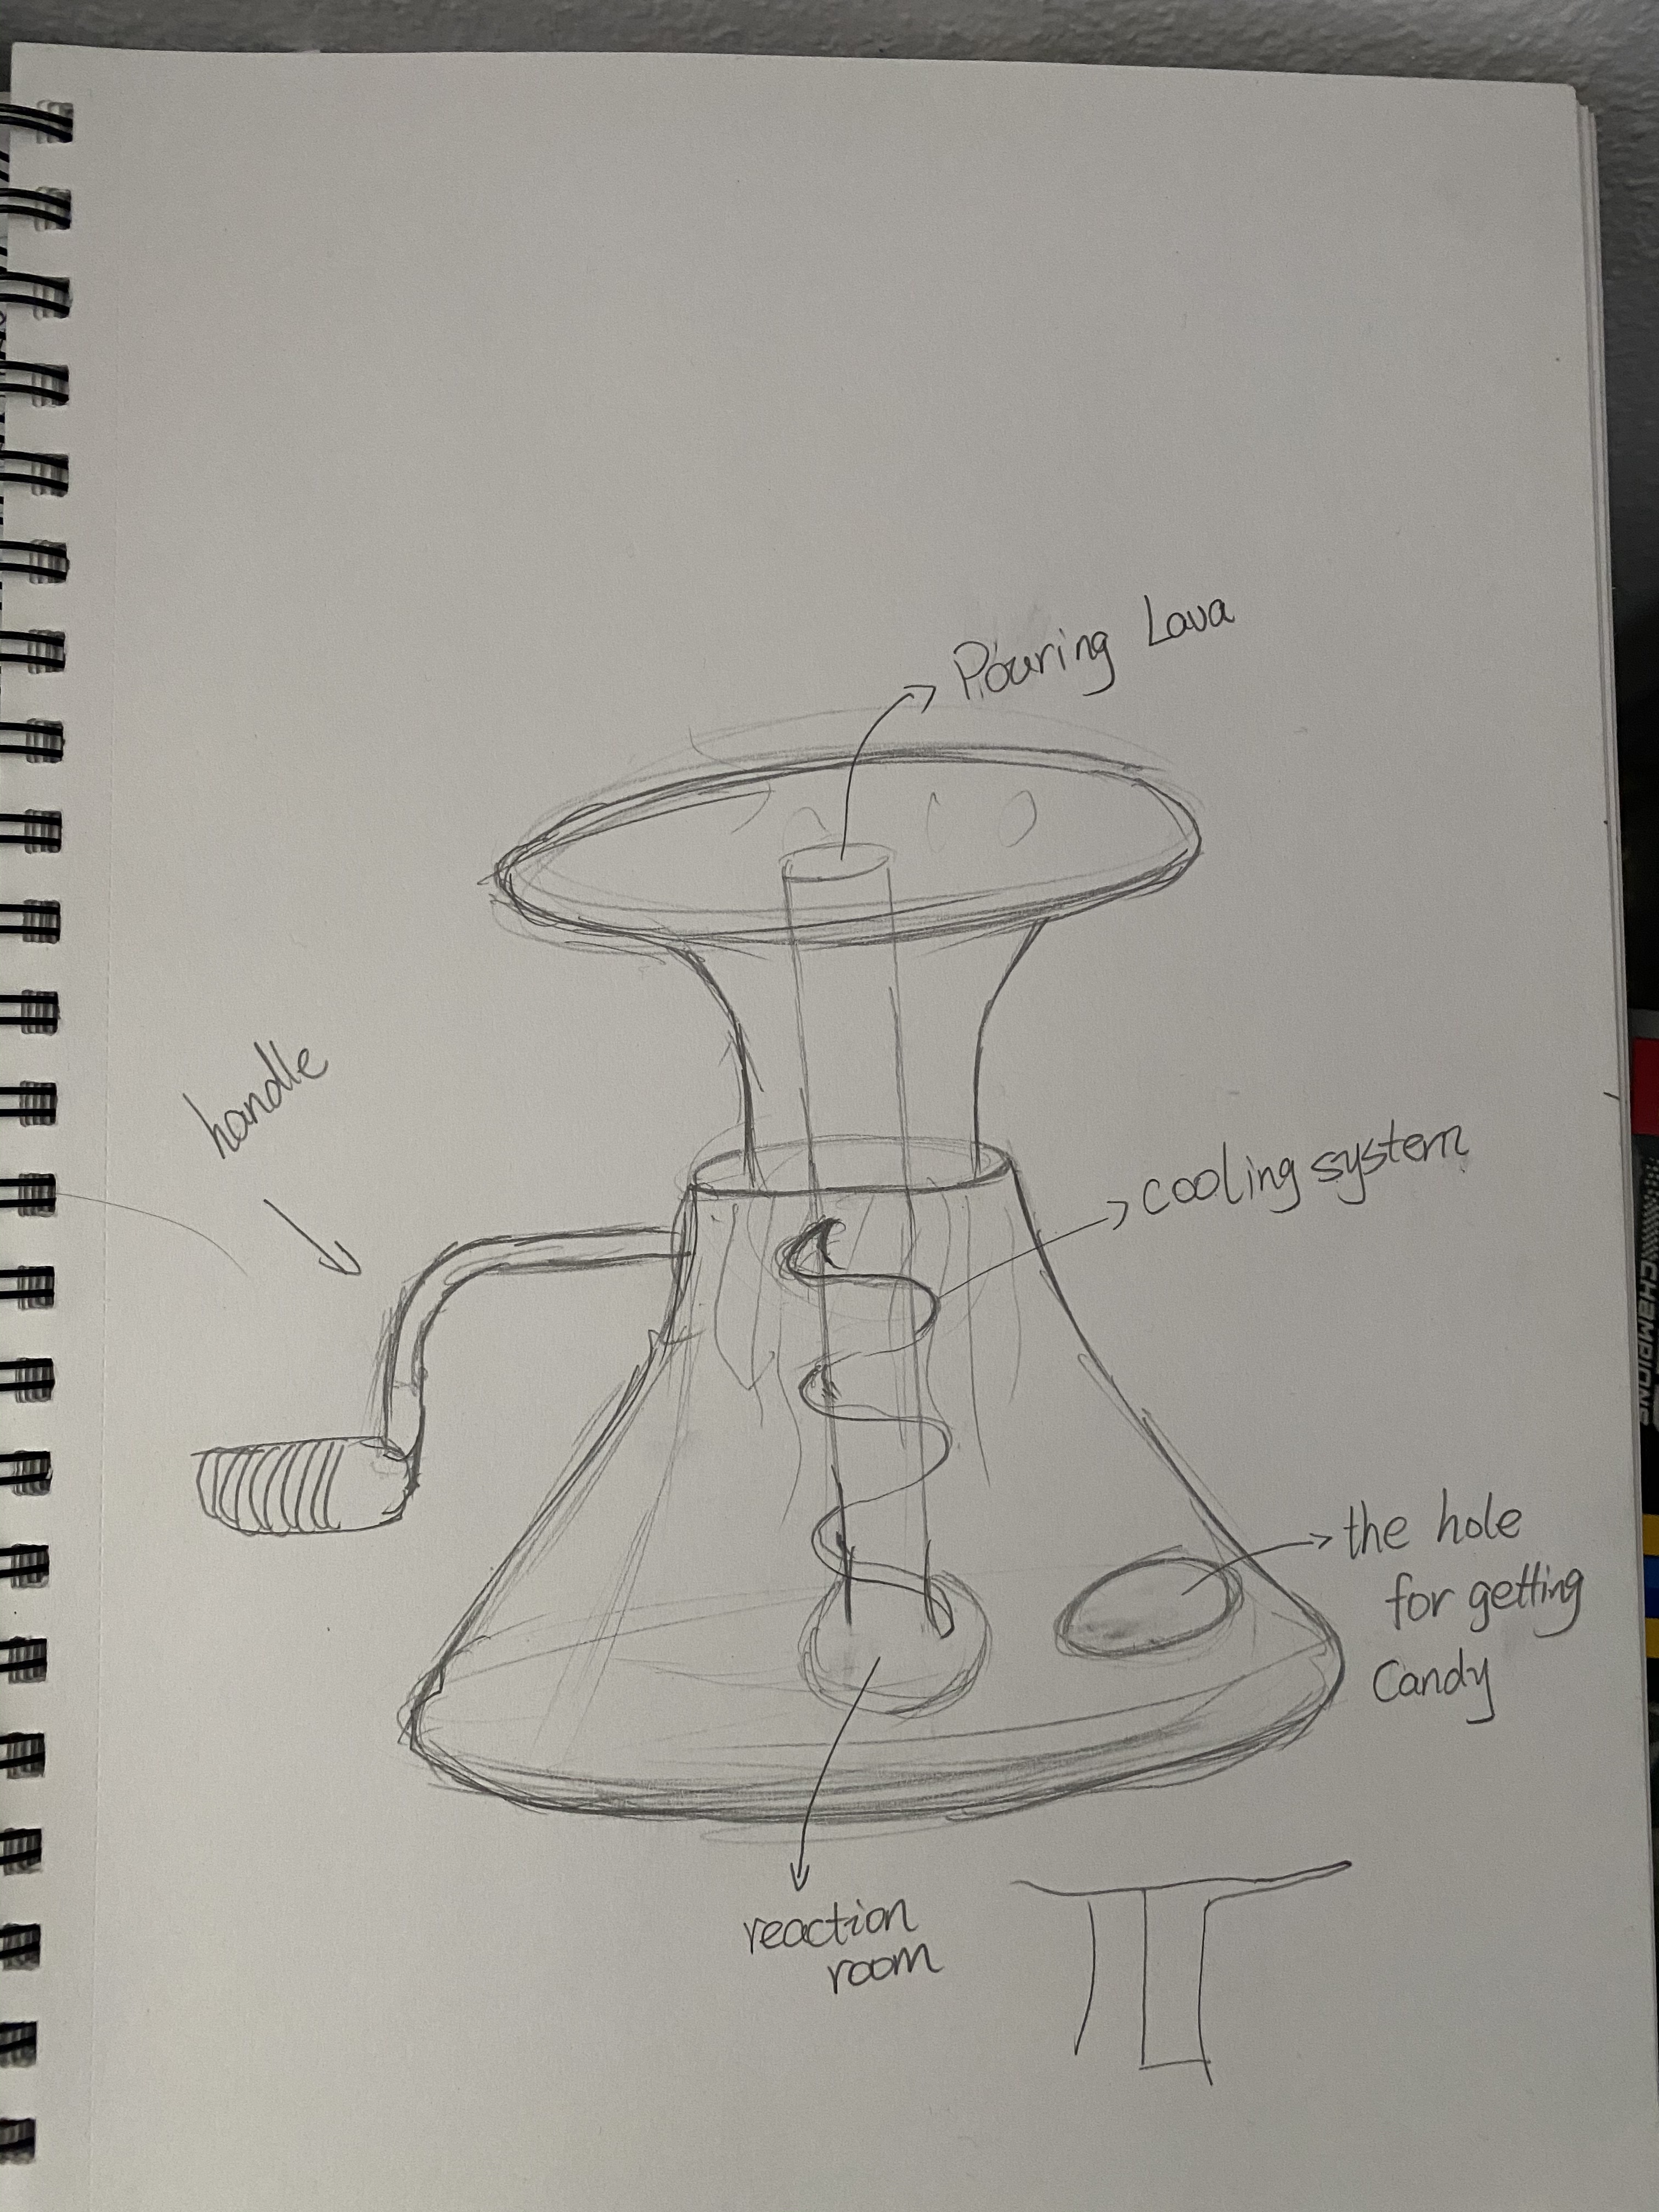 Pouring Lava
handle
cooling system
the hole
for getting
Candy
reaction
room
CHAMPIONS